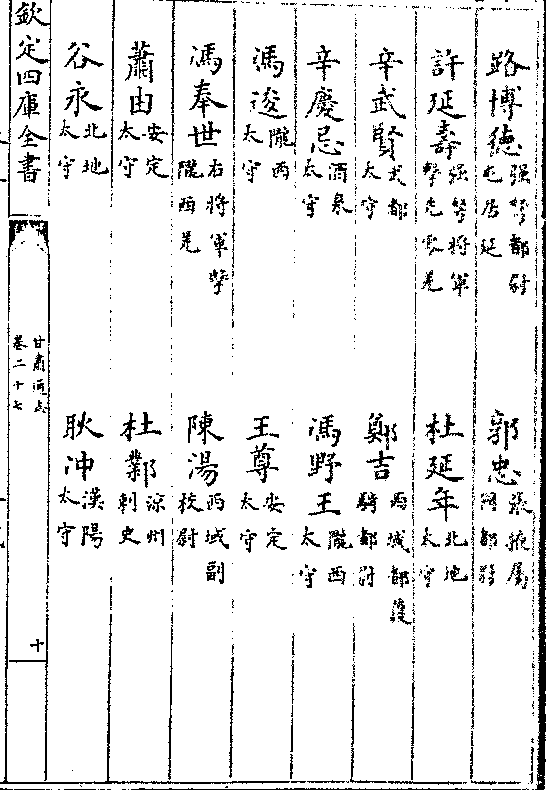 路博德 强弩都尉屯居延 郭忠 張掖屬國都尉
許延壽 强弩將軍擊先零羌 杜延年 北地太守
辛武賢 武都太守 鄭吉 西域都護騎都尉
辛慶忌 酒泉太守 馮野王 隴西太守
馮逡 隴西太守 王尊 安定太守
馮奉世 右將軍擊隴西羌 陳湯 西域副校尉
蕭由 安定太守 杜鄴 涼州刺史
谷永 北地太守 耿冲 漢陽太守
欽定四庫全書
甘肅通志
卷二十七
十